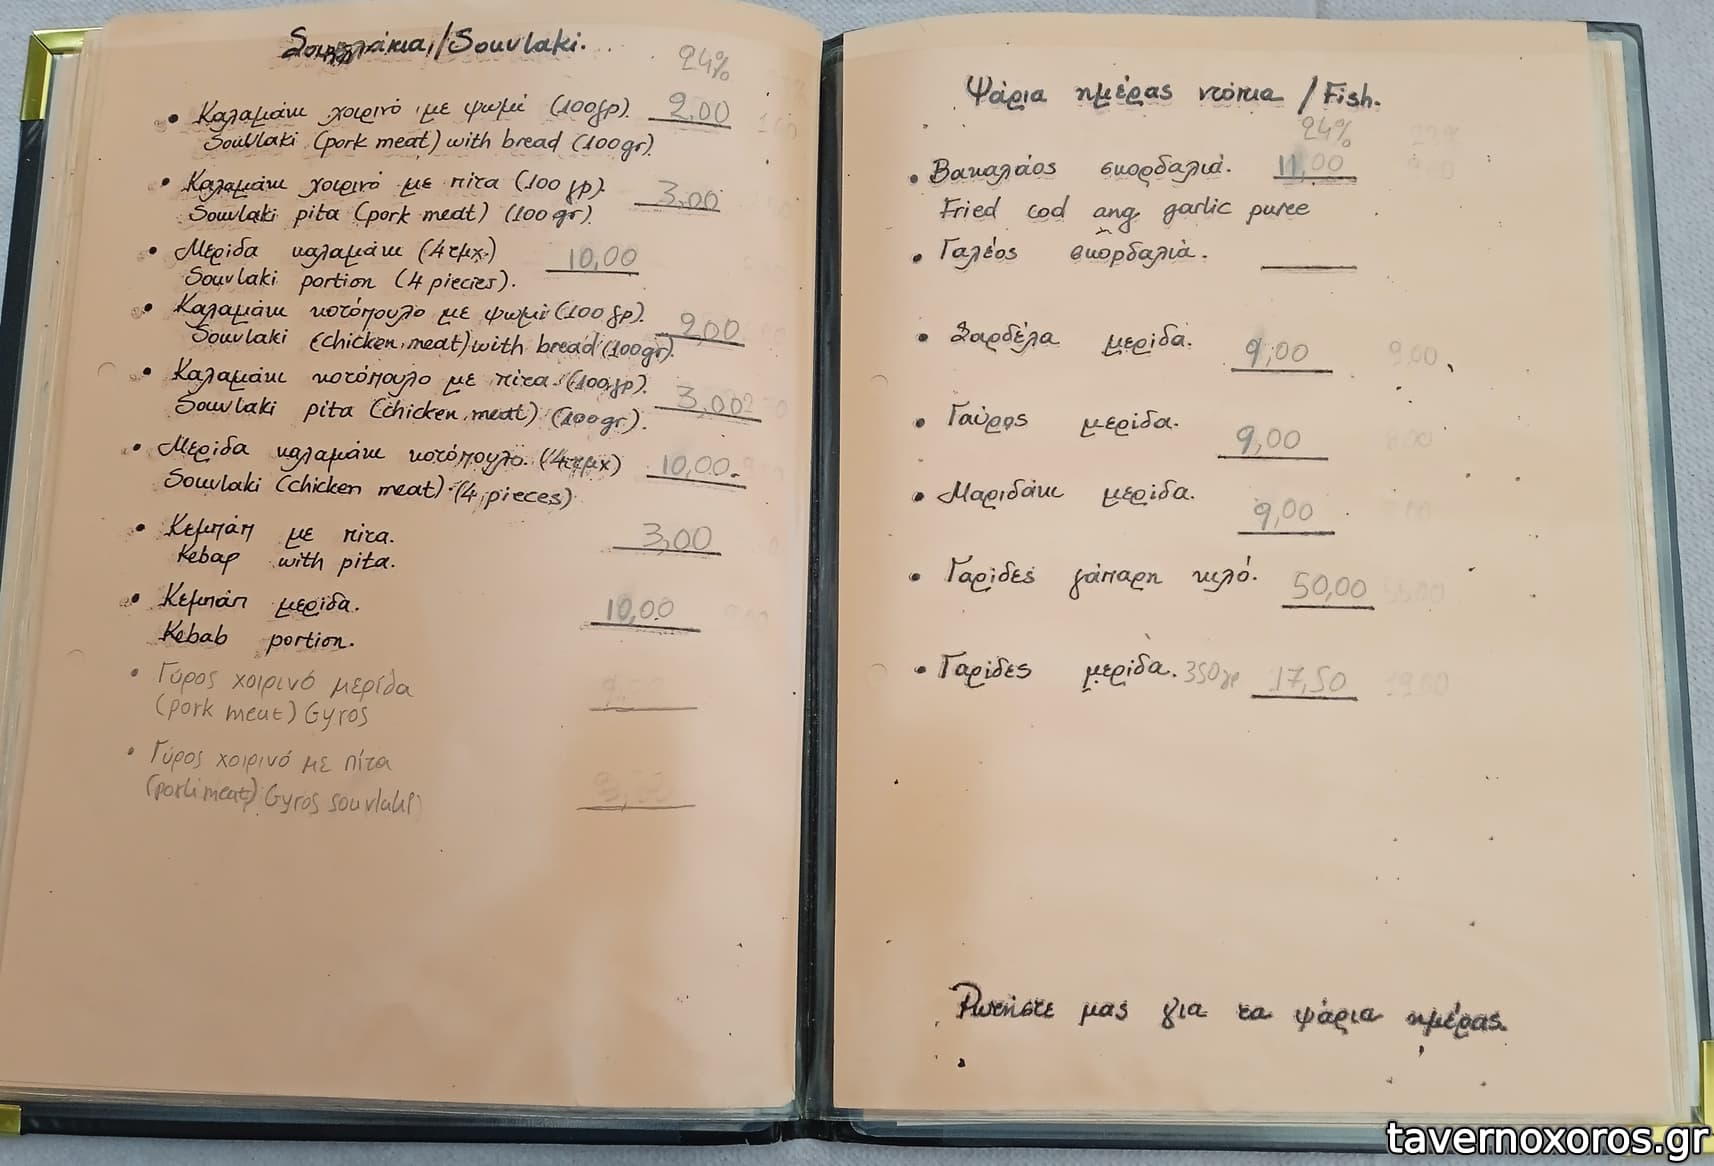 Σουβλάκια/Souvlaki.
24%
• Καλαμάκι χοιρινό με ψωμί (100γρ). 2,00
Souvlaki (pork meat) with bread (100gr).
• Καλαμάκι χοιρινό με πίτα (100γρ). 3,00
Souvlaki pita (pork meat) (100gr).
• Μερίδα καλαμάκι (4τμχ.) 10,00
Souvlaki portion (4 piecies).
• Καλαμάκι κοτόπουλο με ψωμί (100γρ). 2,00
Souvlaki (chicken meat) with bread (100gr).
• Καλαμάκι κοτόπουλο με πίτα. (100γρ). 3,00
Souvlaki pita (chicken meat) (100gr).
• Μερίδα καλαμάκι κοτόπουλο. (4τμχ) 10,00
Souvlaki (chicken meat) (4 pieces)
• Κεμπάπ με πίτα. 3,00
Kebap with pita.
• Κεμπάπ μερίδα. 10,00
Kebab portion.
• Γύρος χοιρινό μερίδα
(pork meat) Gyros
• Γύρος χοιρινό με πίτα
(pork meat) Gyros souvlaki
Ψάρια ημέρας ντόπια /Fish.
24%
• Βακαλάος σκορδαλιά. 11,00
Fried cod ang garlic puree
• Γαλέος σκορδαλιά.
• Σαρδέλα μερίδα. 9,00
• Γαύρος μερίδα. 9,00
• Μαριδάκι μερίδα. 9,00
• Γαρίδες γάμπαρη κιλό. 50,00
• Γαρίδες μερίδα. 350γρ 17,50
Ρωτήστε μας για τα ψάρια ημέρας.
tavernoxoros.gr